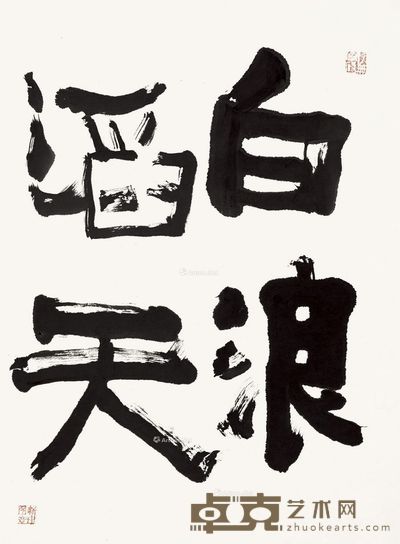 白浪
滔天
卓克艺术网
zhuokearts.com